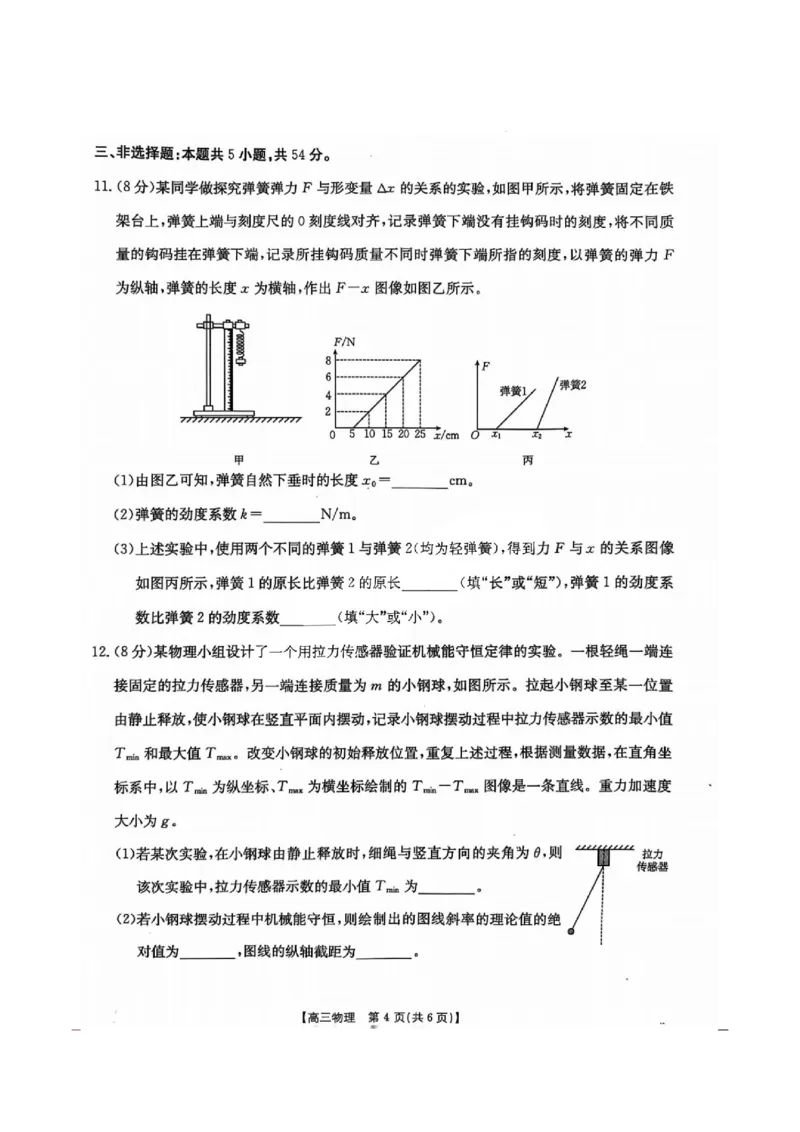 三、非选择题:本题共5小题,共54分。
11.(8分)某同学做探究弹簧弹力F与形变量Δx的关系的实验,如图甲所示,将弹簧固定在铁
架台上,弹簧上端与刻度尺的0刻度线对齐,记录弹簧下端没有挂钩码时的刻度,将不同质
量的钩码挂在弹簧下端,记录所挂钩码质量不同时弹簧下端所指的刻度,以弹簧的弹力F
为纵轴,弹簧的长度x为横轴,作出F-x图像如图乙所示。
F/N
8
6
4
2
0 5 10 15 20 25 x/cm
F
弹簧1
弹簧2
O x₁ x₂ x
甲 乙 丙
(1)由图乙可知,弹簧自然下垂时的长度x₀=______cm。
(2)弹簧的劲度系数k=______N/m。
(3)上述实验中,使用两个不同的弹簧1与弹簧2(均为轻弹簧),得到力F与x的关系图像
如图丙所示,弹簧1的原长比弹簧2的原长______(填“长”或“短”),弹簧1的劲度系
数比弹簧2的劲度系数______(填“大”或“小”)。
12.(8分)某物理小组设计了一个用拉力传感器验证机械能守恒定律的实验。一根轻绳一端连
接固定的拉力传感器,另一端连接质量为m的小钢球,如图所示。拉起小钢球至某一位置
由静止释放,使小钢球在竖直平面内摆动,记录小钢球摆动过程中拉力传感器示数的最小值
Tmin和最大值Tmax。改变小钢球的初始释放位置,重复上述过程,根据测量数据,在直角坐
标系中,以Tmin为纵坐标、Tmax为横坐标绘制的Tmin-Tmax图像是一条直线。重力加速度
大小为g。
(1)若某次实验,在小钢球由静止释放时,细绳与竖直方向的夹角为θ,则
该次实验中,拉力传感器示数的最小值Tmin为______。
(2)若小钢球摆动过程中机械能守恒,则绘制出的图线斜率的理论值的绝
对值为______,图线的纵轴截距为______。
拉力
传感器
【高三物理 第4页(共6页)】